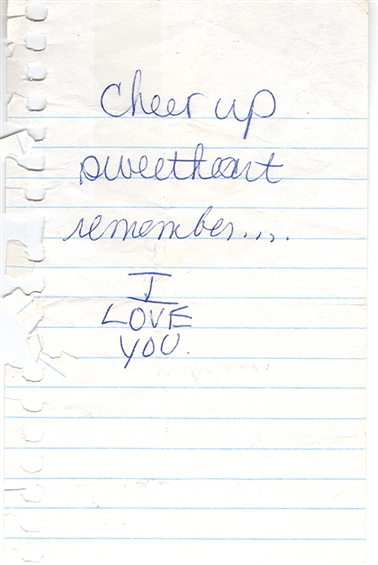 Cheer up
sweetheart
remember....
I
LOVE
YOU.